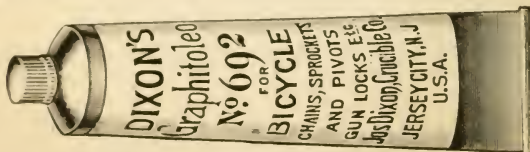 DIXON'S
Graphitoleo
No. 692
FOR
BICYCLE
CHAINS, SPROCKETS
AND PIVOTS
GUN LOCKS Etc.
Jos. Dixon Crucible Co.
JERSEY CITY, N.J.
U.S.A.